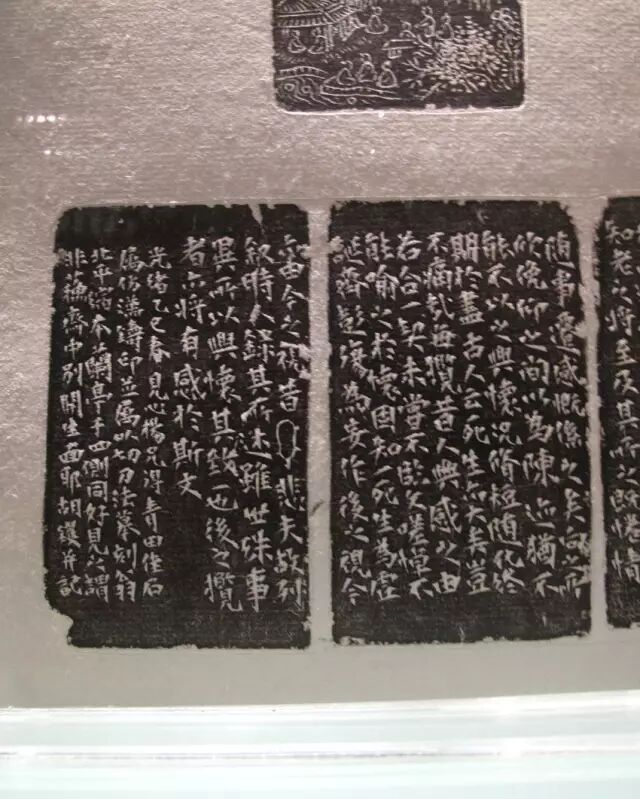 知老之將至及其所之既惓情
隨事遷感慨係之矣向之所
欣俛仰之間以為陳迹猶不
能不以之興懷況脩短隨化終
期於盡古人云死生亦大矣豈
不痛哉每攬昔人興感之由
若合一契未嘗不臨文嗟悼不
能喻之於懷固知一死生為虛
誕齊彭殤為妄作後之視今
亦由今之視昔悲夫故列
敘時人錄其所述雖世殊事
異所以興懷其致一也後之攬
者亦將有感於斯文
光緒乙巳春見心楊兄得青田佳石
屬仿漢鑄印並屬以切刀法摹刻翁
北平縮本蘭亭于四側同好見之謂
蘇齋中別開生面耶胡钁并記